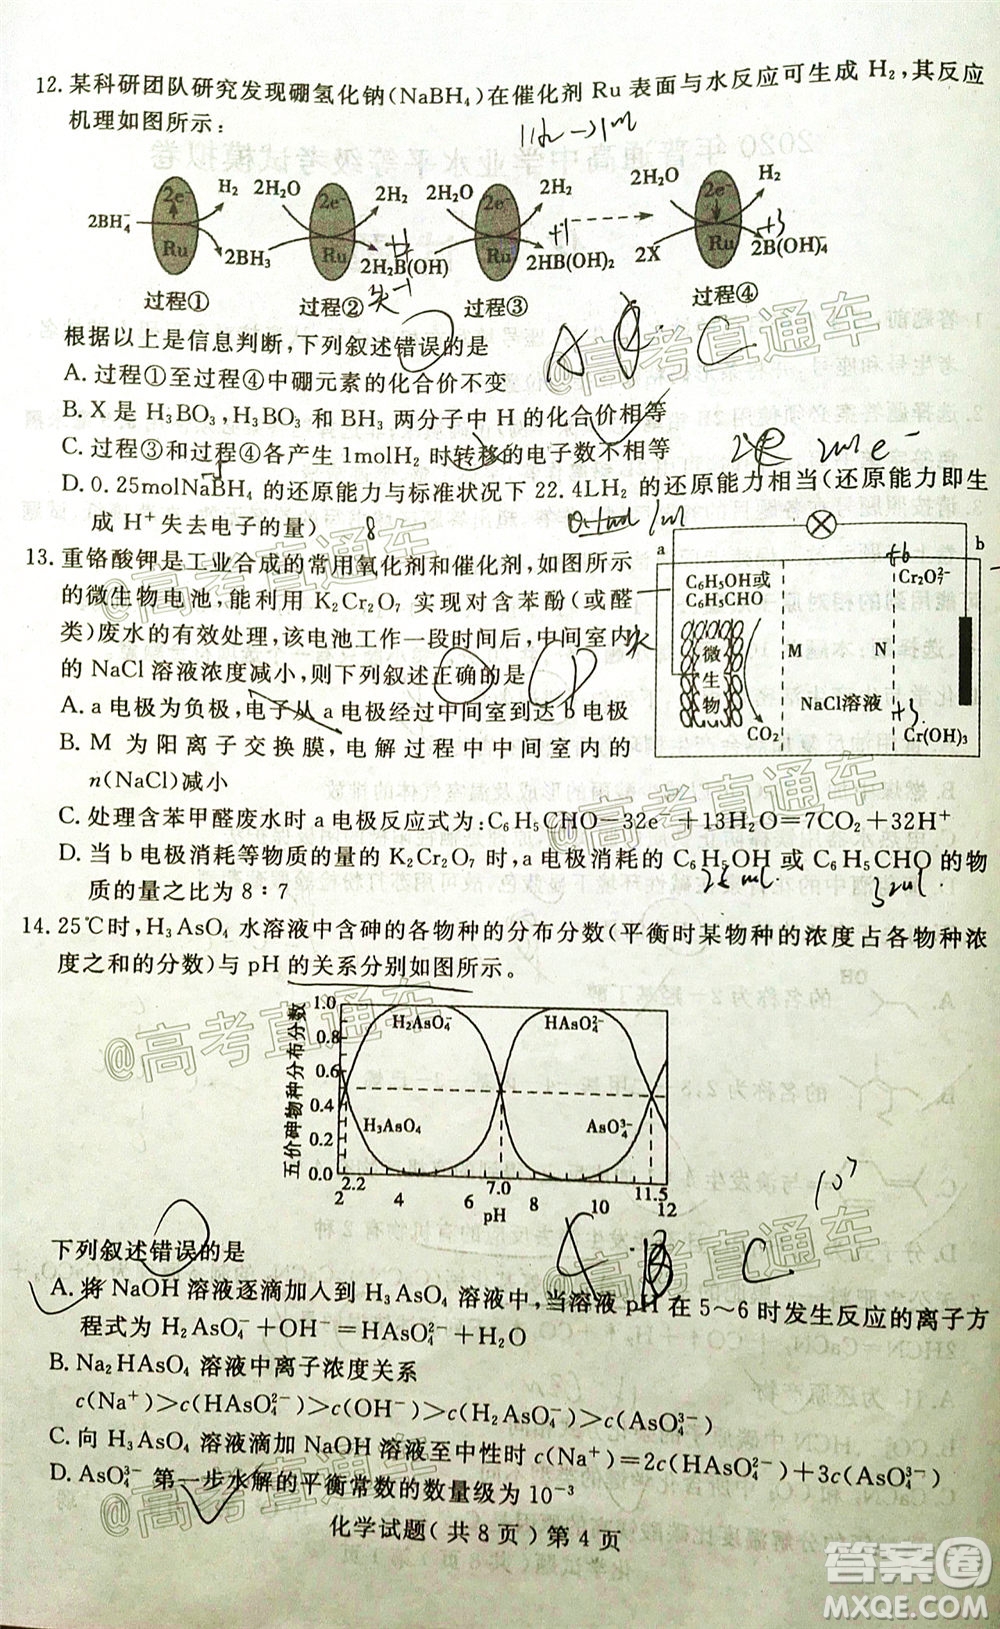 12.某科研团队研究发现硼氢化钠(NaBH₄)在催化剂 Ru 表面与水反应可生成 H₂,其反应
机理如图所示:
2BH₄⁻ 2e⁻ Ru H₂ 2BH₃ 过程①
2H₂O 2e⁻ Ru H₂ 2H₂B(OH) 过程②
2H₂O 2e⁻ Ru 2H₂ 2HB(OH)₂ 过程③
2H₂O 2X 2e⁻ Ru H₂ 2B(OH)₄⁻ 过程④
根据以上是信息判断,下列叙述错误的是
A.过程①至过程④中硼元素的化合价不变
B.X 是 H₃BO₃,H₃BO₃ 和 BH₃ 两分子中 H 的化合价相等
C.过程③和过程④各产生 1molH₂ 时转移的电子数不相等
D.0.25molNaBH₄ 的还原能力与标准状况下 22.4LH₂ 的还原能力相当(还原能力即生
成 H⁺失去电子的量)
13.重铬酸钾是工业合成的常用氧化剂和催化剂,如图所示
的微生物电池,能利用 K₂Cr₂O₇ 实现对含苯酚(或醛
类)废水的有效处理,该电池工作一段时间后,中间室内
的 NaCl 溶液浓度减小,则下列叙述正确的是
A.a 电极为负极,电子从 a 电极经过中间室到达 b 电极
B.M 为阳离子交换膜,电解过程中中间室内的
n(NaCl)减小
a b
C₆H₅OH或
C₆H₅CHO
微生物
CO₂
M N
NaCl溶液
Cr₂O₇²⁻
Cr(OH)₃
C.处理含苯甲醛废水时 a 电极反应式为:C₆H₅CHO−32e⁻+13H₂O=7CO₂+32H⁺
D.当 b 电极消耗等物质的量的 K₂Cr₂O₇ 时,a 电极消耗的 C₆H₅OH 或 C₆H₅CHO 的物
质的量之比为 8∶7
14.25℃时,H₃AsO₄ 水溶液中含砷的各物种的分布分数(平衡时某物种的浓度占各物种浓
度之和的分数)与 pH 的关系分别如图所示。
五价砷物种分布分数
1.0
0.8
0.6
0.4
0.2
0.0
H₂AsO₄⁻ HAsO₄²⁻
H₃AsO₄ AsO₄³⁻
2.2 7.0 11.5
2 4 6 8 10 12
pH
下列叙述错误的是
A.将 NaOH 溶液逐滴加入到 H₃AsO₄ 溶液中,当溶液 pH 在 5～6 时发生反应的离子方
程式为 H₂AsO₄⁻+OH⁻=HAsO₄²⁻+H₂O
B.Na₂HAsO₄ 溶液中离子浓度关系
c(Na⁺)>c(HAsO₄²⁻)>c(OH⁻)>c(H₂AsO₄⁻)>c(AsO₄³⁻)
C.向 H₃AsO₄ 溶液滴加 NaOH 溶液至中性时 c(Na⁺)=2c(HAsO₄²⁻)+3c(AsO₄³⁻)
D.AsO₄³⁻ 第一步水解的平衡常数的数量级为 10⁻³
化学试题(共8页)第4页
@高考直通车
答案圈
MXQE.COM